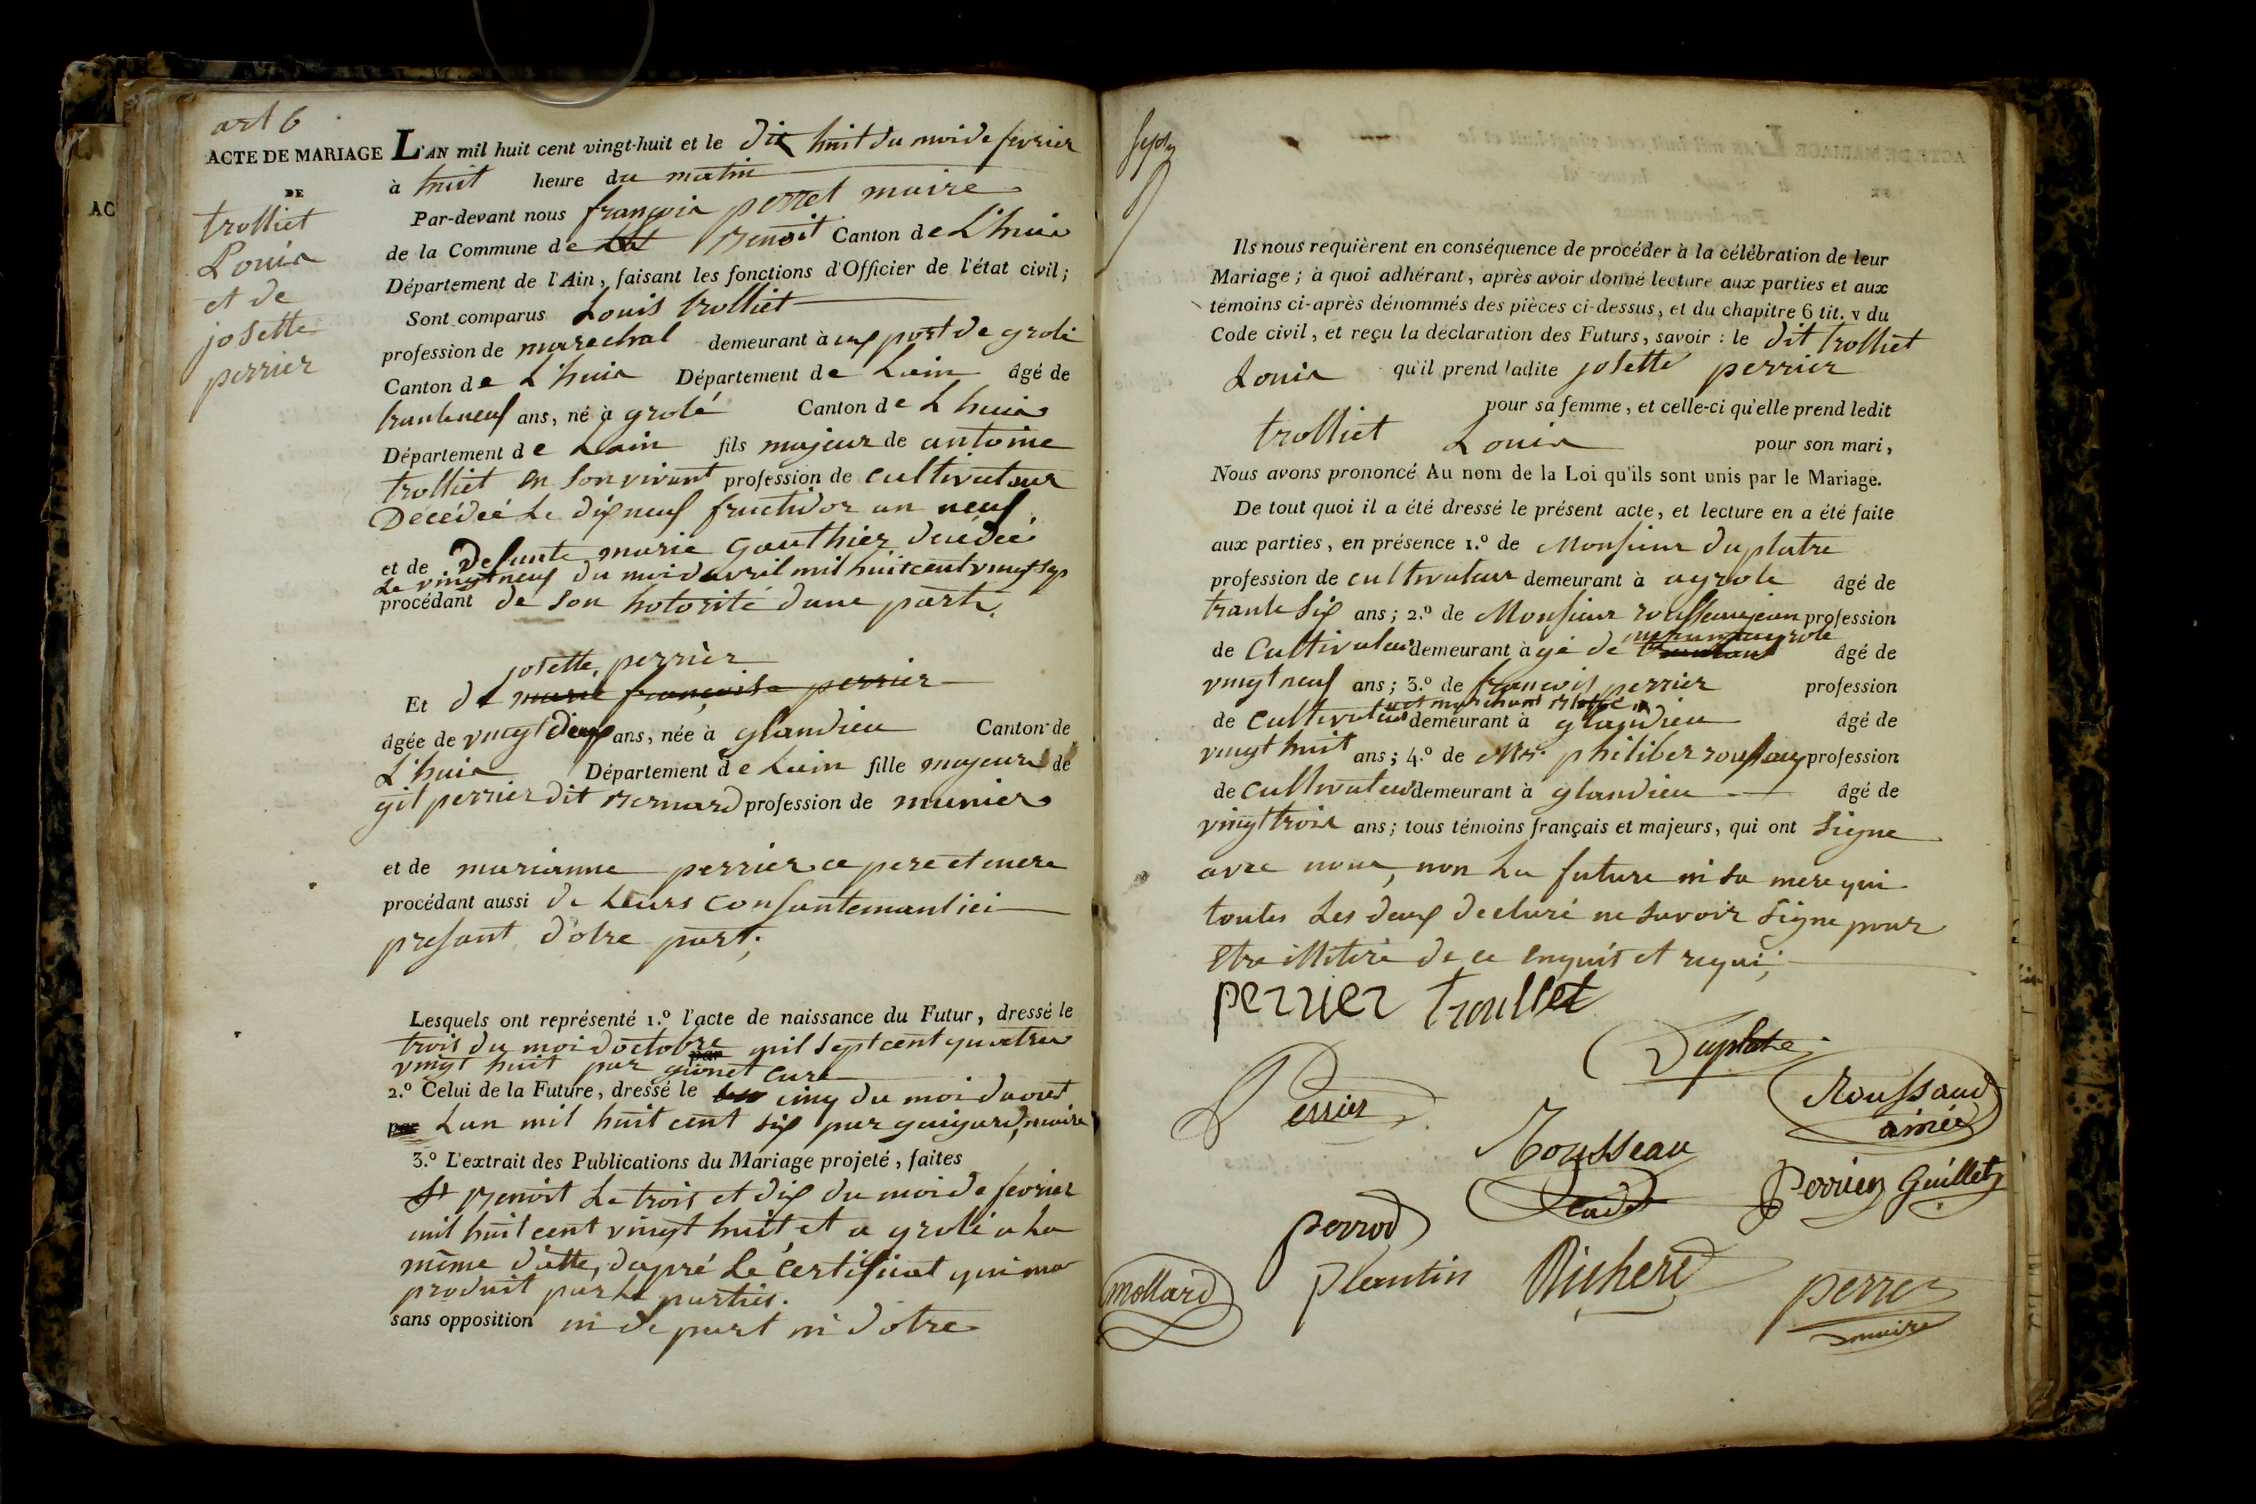 art 6
ACTE DE MARIAGE
DE
trolliet
Louis
et de
josette
perrier
L'AN mil huit cent vingt-huit et le dix huit du moi de fevrier
à huit heure du matin
Par-devant nous françois perret maire
de la Commune de St Benoit Canton de L'huis
Département de l'Ain, faisant les fonctions d'Officier de l'état civil;
Sont comparus Louis trolliet
profession de marechal demeurant à aux port de grolé
Canton de L'huis Département de Lain âgé de
trante neuf ans, né à grolé Canton de L huis
Département de Lain fils majeur de antoine
trolliet en son vivant profession de cultivateur
Décédée Le dix neuf fructidor an neuf
et de defunte marie Gauthier décédée
Le vingt neuf du moi davril mil huit cent vingt sep
procédant de son hotorité dune part,
josette perrier
Et de marie françoise perrier
âgée de vingt deux ans, née à glandieu Canton de
L'huis Département de Lain fille majeure de
gil perrier dit Bernard profession de munier
et de marianne perrier ce pere et mere
procédant aussi de Leurs consantemant ici
presant d'otre part;
Lesquels ont représenté 1.º l'acte de naissance du Futur, dressé le
trois du moi doctobre mil sept cent quatre
vingt huit par gionet curé
2.º Celui de la Future, dressé le cinq du moi daout
par Lan mil huit cent six par guigard, maire
3.º L'extrait des Publications du Mariage projeté, faites
St Benoit Le trois et dix du moi de fevrier
mil huit cent vingt huit et a grolé a La
même datte, dapré Le certificat qui ma
produit par Le parties.
sans opposition ni de part ni dotre
Ils nous requièrent en conséquence de procéder à la célébration de leur
Mariage; à quoi adhérant, après avoir donné lecture aux parties et aux
témoins ci-après dénommés des pièces ci-dessus, et du chapitre 6 tit. v du
Code civil, et reçu la déclaration des Futurs, savoir: le dit trolliet
Louis qu'il prend ladite josette perrier
pour sa femme, et celle-ci qu'elle prend ledit
trolliet Louis pour son mari,
Nous avons prononcé Au nom de la Loi qu'ils sont unis par le Mariage.
De tout quoi il a été dressé le présent acte, et lecture en a été faite
aux parties, en présence 1.º de Monsieur duplatre
profession de cultivateur demeurant à agrole âgé de
trante six ans; 2.º de Monsieur rousseau jean profession
de Cultivateur demeurant à gé de âgé de
vingt neuf ans; 3.º de françois perrier profession
de cultivateur demeurant à glandieu âgé de
vingt huit ans; 4.º de Mr. philiber roussau profession
de cultivateur demeurant à glandieu âgé de
vingt trois ans; tous témoins français et majeurs, qui ont signe
avec nous, non La future ni sa mere qui
toutes Les deux declaré ne savoir signe pour
Etre illitiré de ce enquis et requi;
perrier troulliet
Duplatre
Perrier
Roussaud
ainée
Rousseau
cadet
Perrier Guillet
perrod
mollard
plantin
Richerd
perret
maire